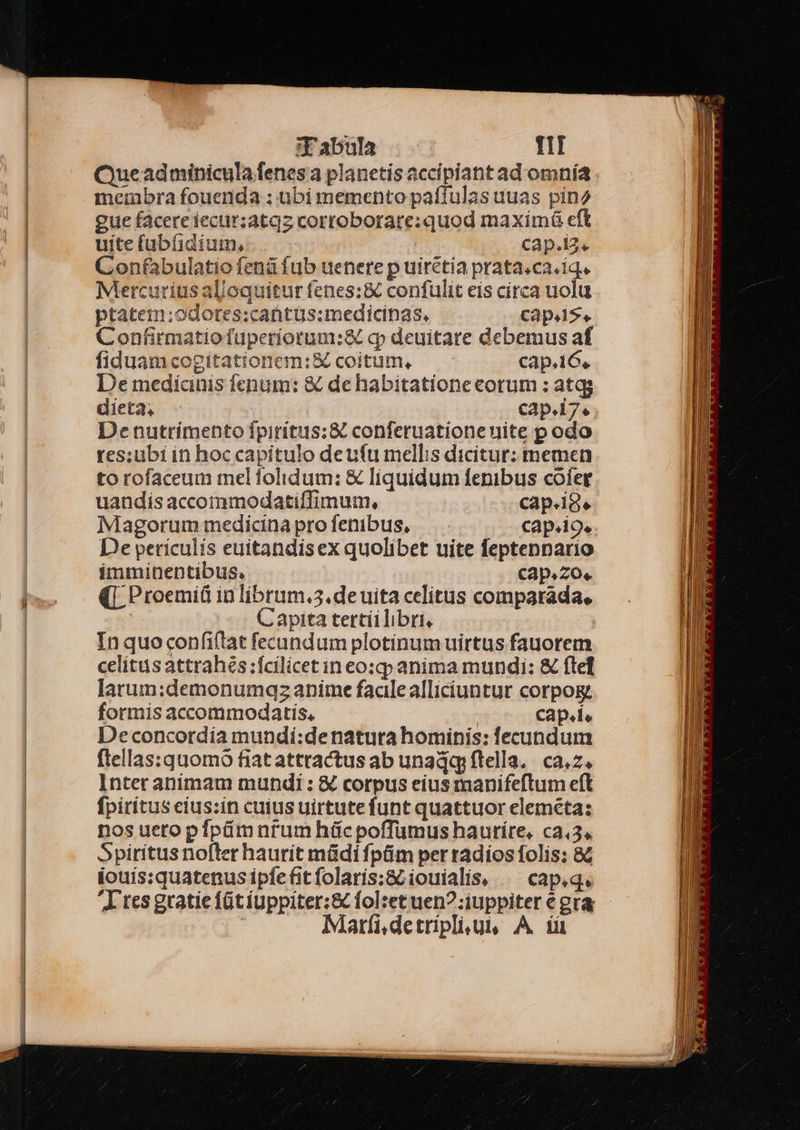 Tabula III
Que adminicula senes a planetis accipiant ad omnia
membra fouenda : ubi memento passulas uuas pin⁊
gue facere iecur:atqꝫ corroborare:quod maximũ est
uite subsidium. cap.13.
Confabulatio senũ sub uenere p uirẽtia prata.ca.14.
Mercurius alloquitur senes:& consulit eis circa uolu
ptatem:odores:cantus:medicinas. cap.15.
Confirmatio superiorum:& ꝙ deuitare debemus as
siduam cogitationem:& coitum. cap.16.
De medicinis senum: & de habitatione eorum : atqꝫ
dieta. cap.17.
De nutrimento spiritus:& conseruatione uite p odo
res:ubi in hoc capitulo de usu mellis dicitur: memen
to rosaceum mel solidum: & liquidum senibus cõser
uandis accommodatissimum. cap.18.
Magorum medicina pro senibus. cap.19.
De periculis euitandis ex quolibet uite septennario
imminentibus. cap.20.
⸿ Proemiũ in librum.3.de uita celitus comparãda.
Capita tertii libri.
In quo consistat secundum plotinum uirtus fauorem
celitus attrahẽs:scilicet in eo:ꝙ anima mundi: & stel
larum:demonumqꝫ anime facile alliciuntur corpoꝝ
formis accommodatis. cap.i.
De concordia mundi:de natura hominis: secundum
stellas:quomõ fiat attractus ab unaqꝗꝫ stella. ca.2.
Inter animam mundi : & corpus eius manifestum est
spiritus eius:in cuius uirtute sunt quattuor elemẽta:
nos uero p spũm nr̃um hũc possumus haurire. ca.3.
Spiritus noster haurit mũdi spũm per radios solis: &
iouis:quatenus ipse fit solaris:& iouialis. cap.4.
Tres gratie sũt iuppiter:& sol:et uen⁹:iuppiter ẽ gra
Marsi.de tripli.ui. A iii